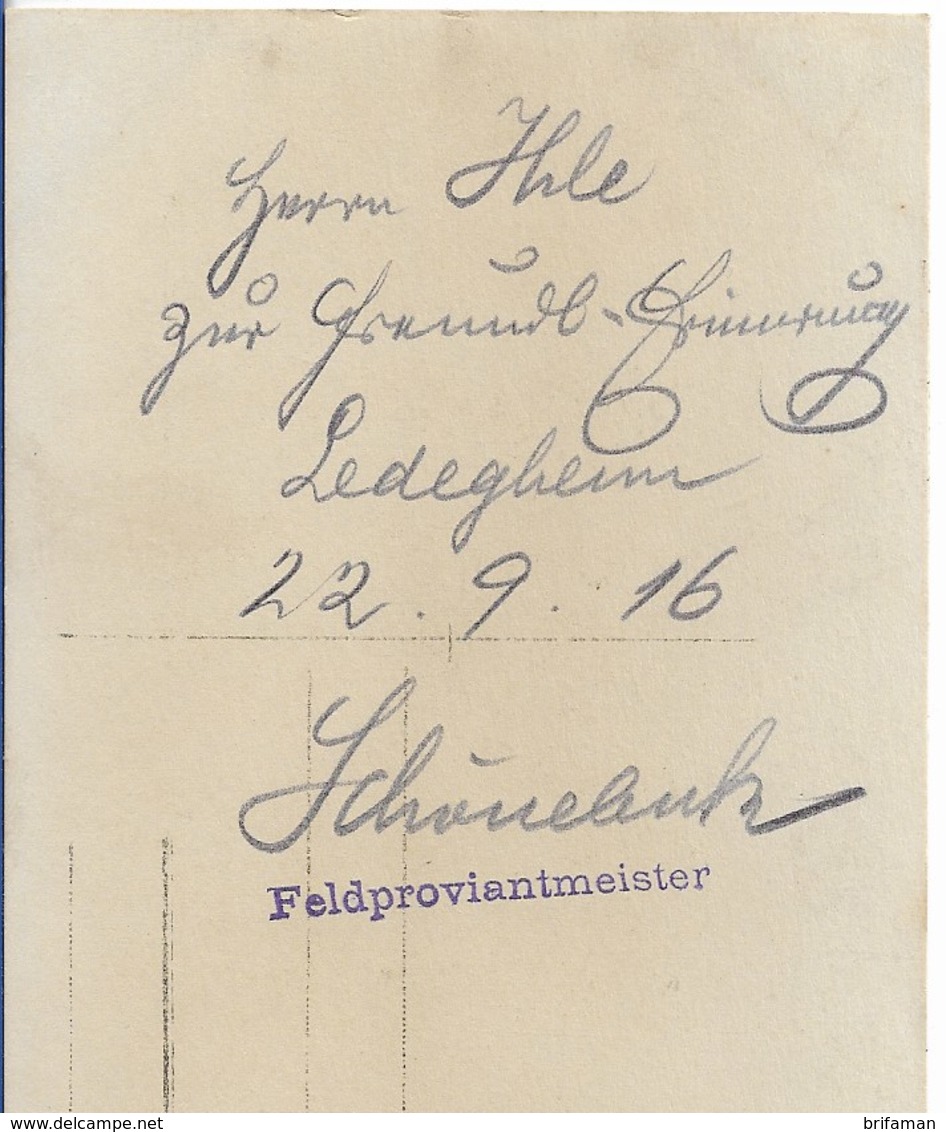 Herrn Ihle
zur freundl. Erinnerung
Ledeghem
22. 9. 16
Feldproviantmeister
delcampe.net
brifaman